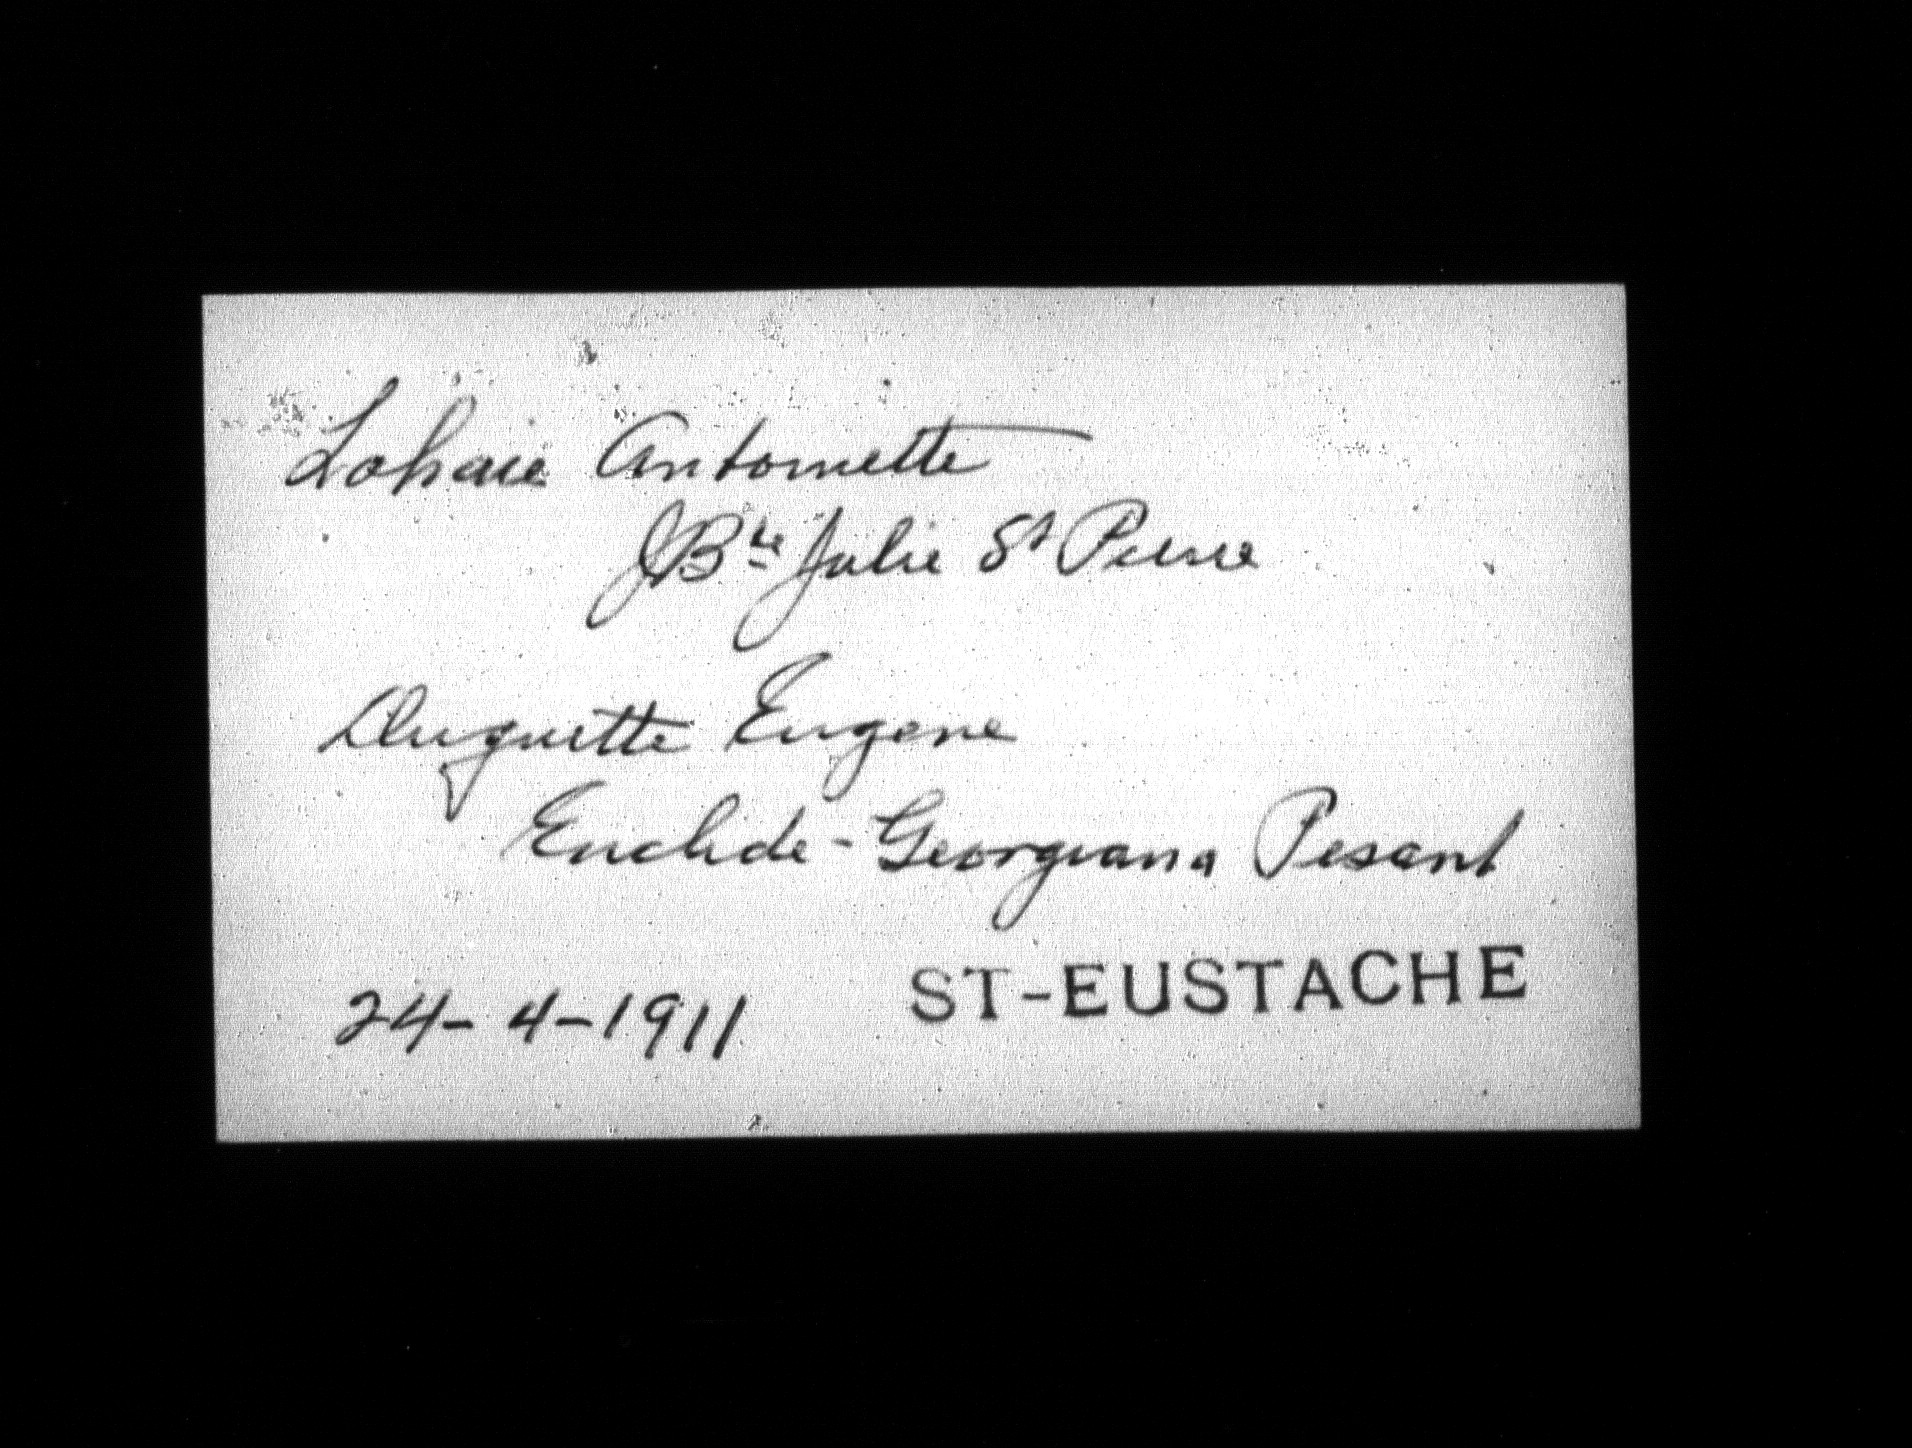 Lahaie Antoinette
JBte Julie St Pierre
Duquette Eugene
Euclide - Georgiana Pesant
24-4-1911 ST-EUSTACHE